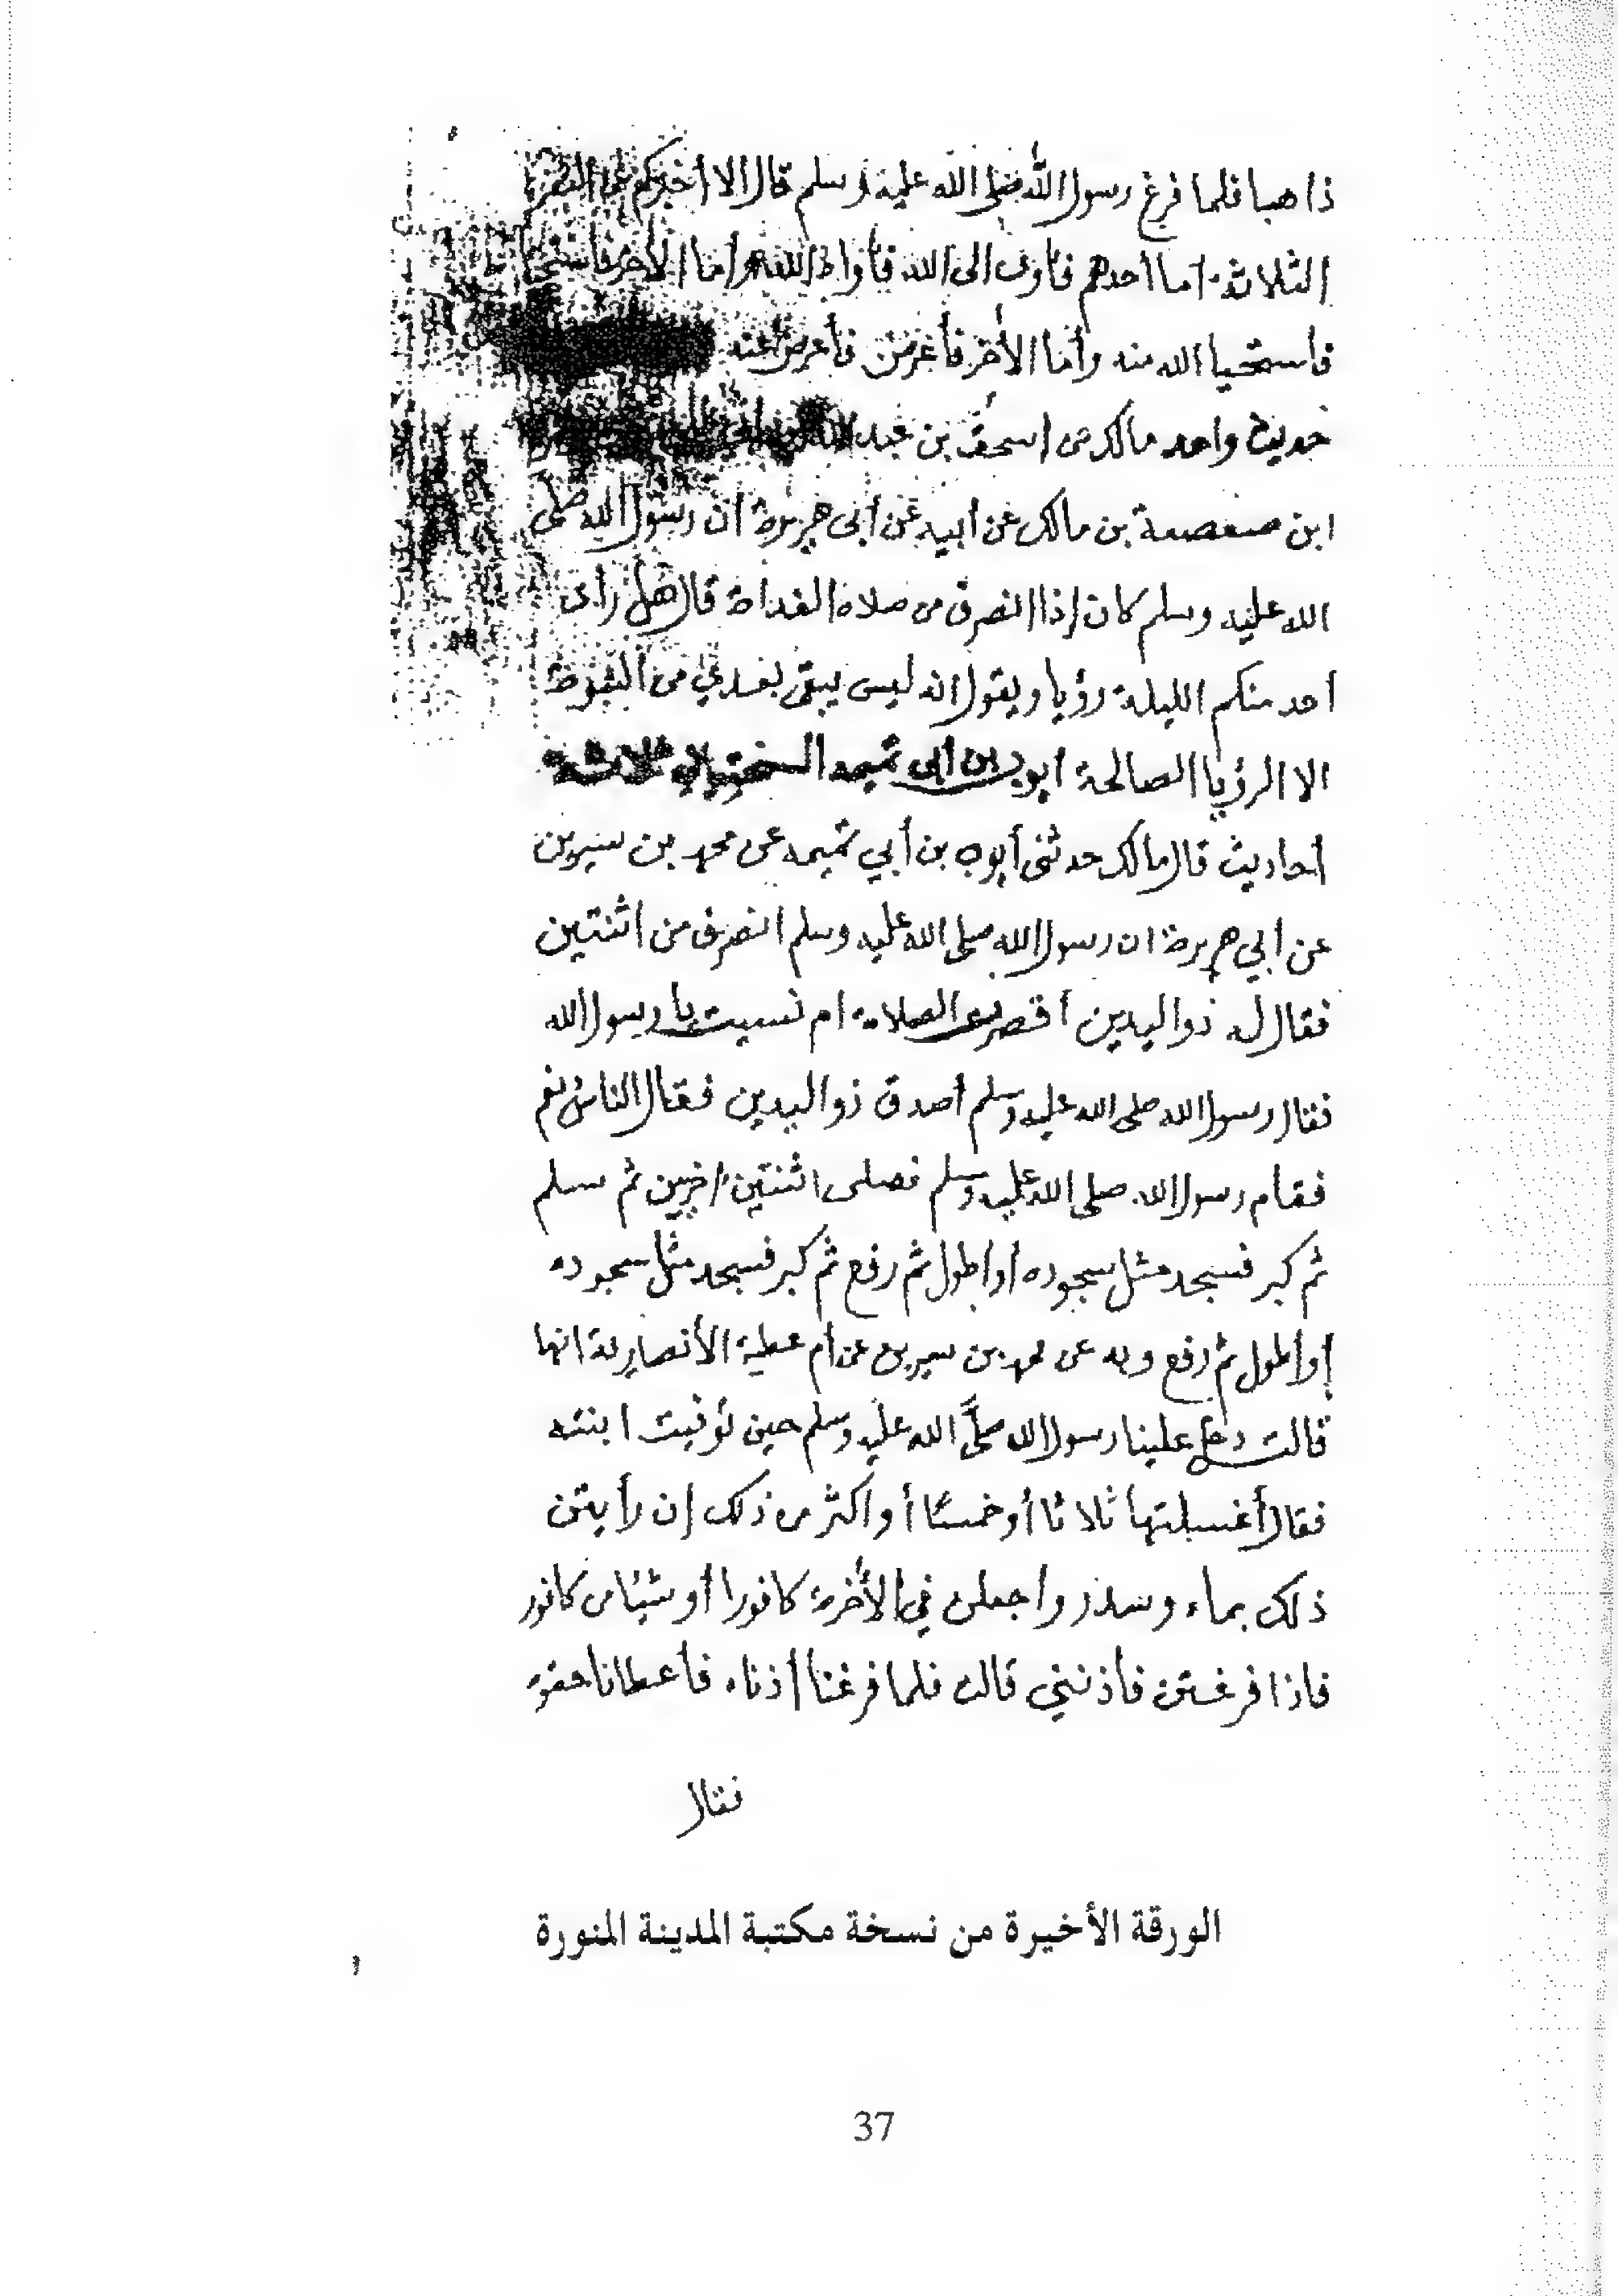 ذاهبا فلما فرغ رسول الله صلى الله عليه وسلم قال الا أخبركم عن النفر
الثلاثة اما أحدهم فأوى الى الله فأواه الله وأما الأخر فاستحيا
فاستحيا الله منه وأما الأخر فأعرض فأعرض الله عنه
حديث واحد مالك عن اسحق بن عبد الله بن أبي طلحة
ابن صعصعة بن مالك عن أبيه عن أبي هريرة ان رسول الله صلى
الله عليه وسلم كان إذا انصرف من صلاة الغداة قال هل رأى
احد منكم الليلة رؤيا ويقول انه ليس يبقى بعدي من النبوة
الا الرؤيا الصالحة ايوب بن أبي تميمه السختياني ثلاثة
أحاديث قال مالك حدثني أيوب بن أبي تميمه عن محمد بن سيرين
عن أبي هريرة ان رسول الله صلى الله عليه وسلم انصرف من اثنتين
فقال له ذو اليدين أقصرت الصلاة ام نسيت يا رسول الله
فقال رسول الله صلى الله عليه وسلم أصدق ذو اليدين فقال الناس نعم
فقام رسول الله صلى الله عليه وسلم فصلى اثنتين أخريين ثم سلم
ثم كبر فسجد مثل سجوده أو أطول ثم رفع ثم كبر فسجد مثل سجوده
أو أطول ثم رفع وبه عن محمد بن سيرين عن أم عطية الأنصارية انها
قالت دخل علينا رسول الله صلى الله عليه وسلم حين توفيت ابنته
فقال أغسلنها ثلاثا أو خمسًا أو اكثر من ذلك إن رأيتن
ذلك بماء وسدر واجعلن في الأخرة كافورا أو شيئا من كافور
فاذا فرغتن فأذنني قالت فلما فرغنا أذناه فأعطانا حقوه
فقال
الورقة الأخيرة من نسخة مكتبة المدينة المنورة
37